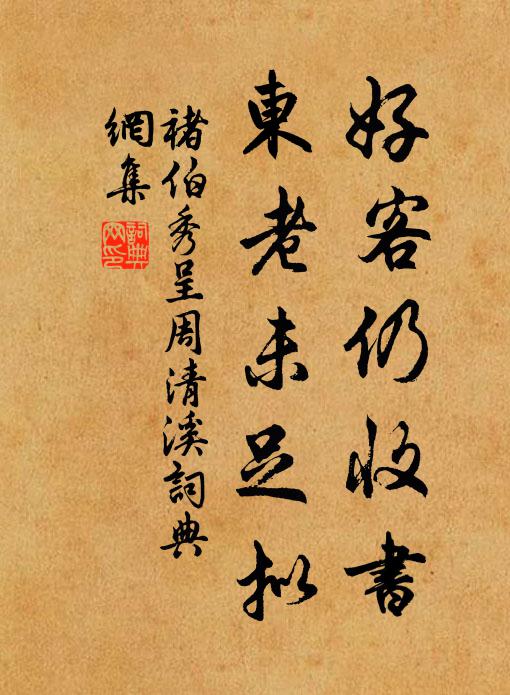 好客仍收書
東老未足擬
褚伯秀呈周清溪詞典
網集
詞典
網印